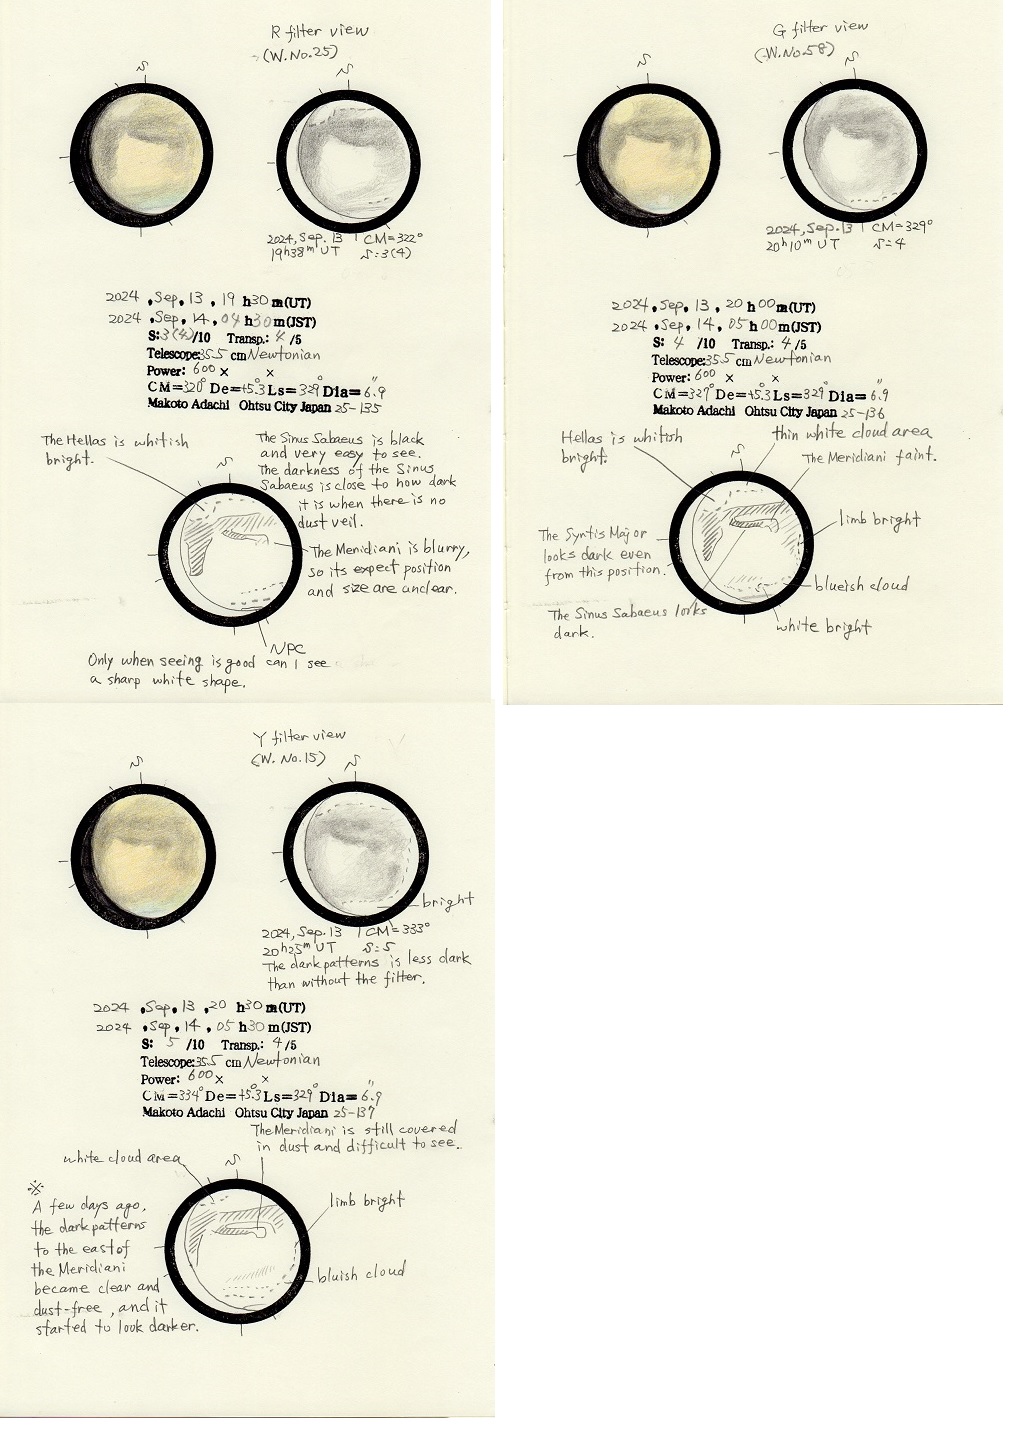 R filter view
(W.No.25)
S
S
2024, Sep. 13 CM=322°
19h38m UT S:3(4)
2024 ,Sep, 13 , 19 h30 m(UT)
2024 ,Sep, 14, 04 h30 m(JST)
S:3(4)/10 Transp.: 4 /5
Telescope:35.5 cm Newtonian
Power: 600 × ×
CM=320° De=+5.3° Ls=329° Dia=6.9"
Makoto Adachi Ohtsu City Japan 25-135
The Hellas is whitish
bright.
The Sinus Sabaeus is black
and very easy to see.
The darkness of the Sinus
Sabaeus is close to how dark
it is when there is no
dust veil.
S
The Meridiani is blurry,
so its expect position
and size are unclear.
NPC
Only when seeing is good can I see
a sharp white shape.
G filter view
(W.No.58)
S
S
2024, Sep. 13 CM=329°
20h10m UT S=4
2024, Sep, 13, 20 h 00m (UT)
2024 ,Sep, 14, 05 h 00m (JST)
S: 4 /10 Transp.: 4 /5
Telescope:35.5 cm Newtonian
Power: 600 × ×
CM=327° De=+5.3° Ls=329° Dia=6.9"
Makoto Adachi Ohtsu City Japan 25-136
Hellas is whitish
bright.
thin white cloud area
The Meridiani faint.
S
limb bright
The Syrtis Major
looks dark even
from this position.
blueish cloud
The Sinus Sabaeus looks
dark.
white bright
Y filter view
(W. No.15)
S
S
bright
2024, Sep. 13 CM=333°
20h25m UT S=5
The dark patterns is less dark
than without the filter.
2024 ,Sep, 13 ,20 h30 m(UT)
2024 ,Sep, 14 , 05 h30 m(JST)
S: 5 /10 Transp.: 4 /5
Telescope:35.5 cm Newtonian
Power: 600 × ×
CM=334° De=+5.3° Ls=329° Dia=6.9"
Makoto Adachi Ohtsu City Japan 25-137
The Meridiani is still covered
in dust and difficult to see.
white cloud area
S
※
A few days ago,
the dark patterns
to the east of
the Meridiani
became clear and
dust-free , and it
started to look darker.
limb bright
bluish cloud